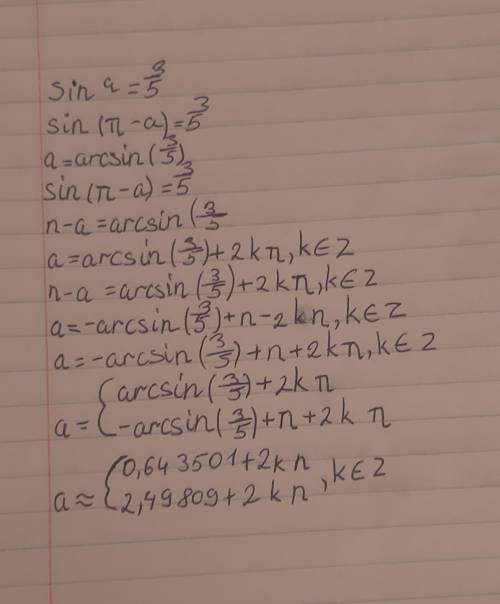 sin a = 3/5
sin (π - a) = 3/5
a = arcsin (3/5)
sin (π - a) = 3/5
n - a = arcsin (3/5
a = arcsin (3/5) + 2kπ, k∈Z
n - a = arcsin (3/5) + 2kπ, k∈Z
a = -arcsin (3/5) + n - 2kn, k∈Z
a = -arcsin (3/5) + n + 2kπ, k∈Z
a = { arcsin (3/5) + 2kπ
-arcsin (3/5) + n + 2kπ
a ≈ { 0,643501 + 2kn
2,49809 + 2kn , k∈Z